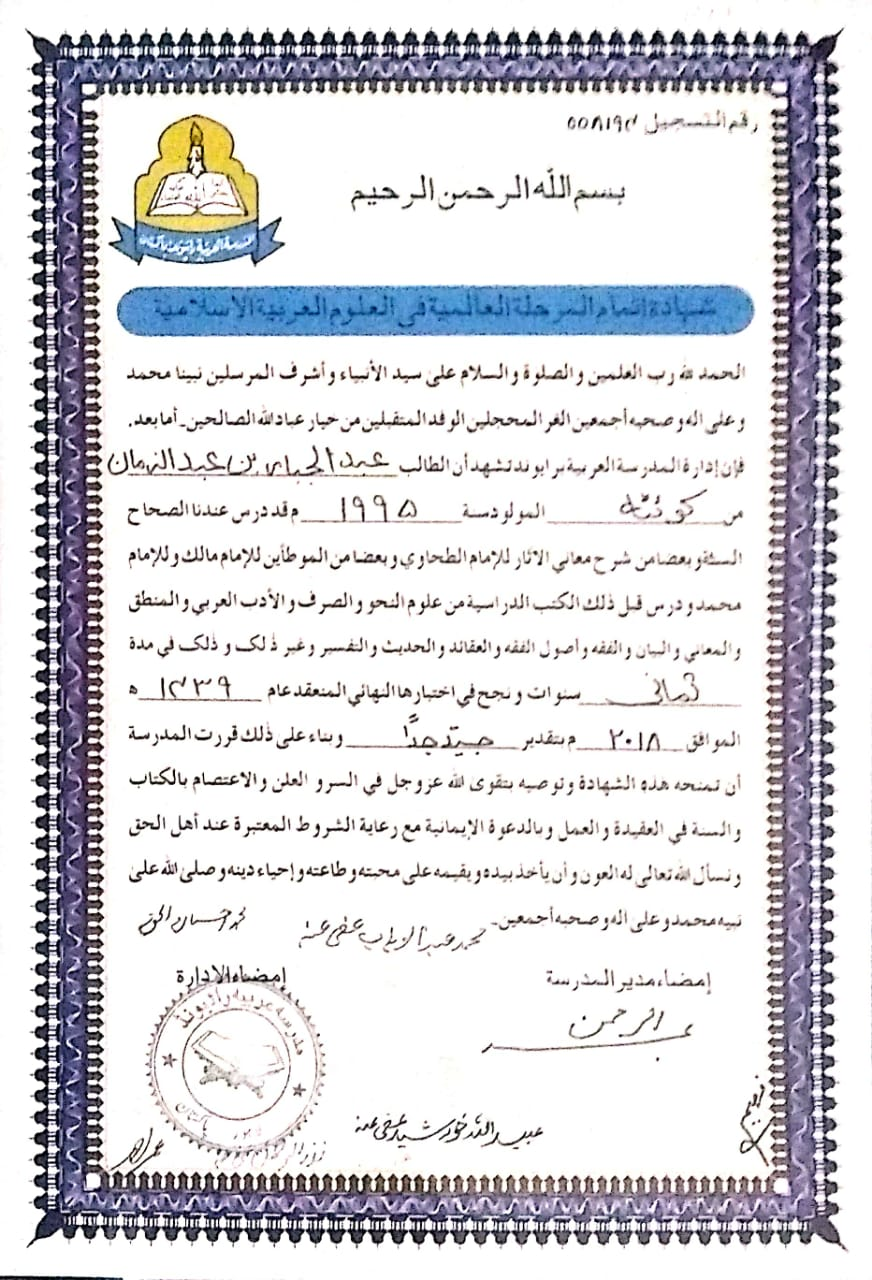 رقم التسجيل ٥٥٨١٩٣
بسم الله الرحمن الرحيم
المدرسة العربية رائيوند باكستان
شهادة اتمام المرحلة العالمية فى العلوم العربية الاسلامية
الحمد لله رب العلمين والصلوة والسلام على سيد الأنبياء وأشرف المرسلين نبينا محمد
وعلى اله وصحبه أجمعين الغر المحجلين الوفد المتقبلين من خيار عباد الله الصالحين۔ أما بعد.
فإن إدارة المدرسة العربية برايوند تشهد أن الطالب عبد الجبار بن عبد الزمان
من كوئٹہ المولود سنة ١٩٩٥ م قد درس عندنا الصحاح
الستة و بعضا من شرح معاني الآثار للإمام الطحاوي و بعضا من الموطأين للإمام مالك وللإمام
محمد ودرس قبل ذلك الكتب الدراسية من علوم النحو والصرف والأدب العربي والمنطق
والمعاني والبيان والفقه وأصول الفقه والعقائد والحديث والتفسير وغير ذلك وذلك في مدة
ثماني سنوات ونجح في اختبارها النهائي المنعقد عام ١٤٣٩ ه
الموافق ٢٠١٨ م بتقدير جيّد جدًّا وبناء على ذلك قررت المدرسة
أن تمنحه هذه الشهادة وتوصيه بتقوى الله عز وجل في السر و العلن والاعتصام بالكتاب
والسنة في العقيدة والعمل وبالدعوة الإيمانية مع رعاية الشروط المعتبرة عند أهل الحق
ونسأل الله تعالى له العون وأن يأخذ بيده ويقيمه على محبته وطاعته وإحياء دينه وصلى الله على
نبيه محمد وعلى اله وصحبه أجمعين۔
محمد عبد الوهاب عفي عنه
محمد احسان الحق
إمضاء مدير المدرسة
إمضاء الإدارة
الرحمن
مدرسه عربيه رائيوند
پاکستان
عبيد الله خورشيد عفي عنه